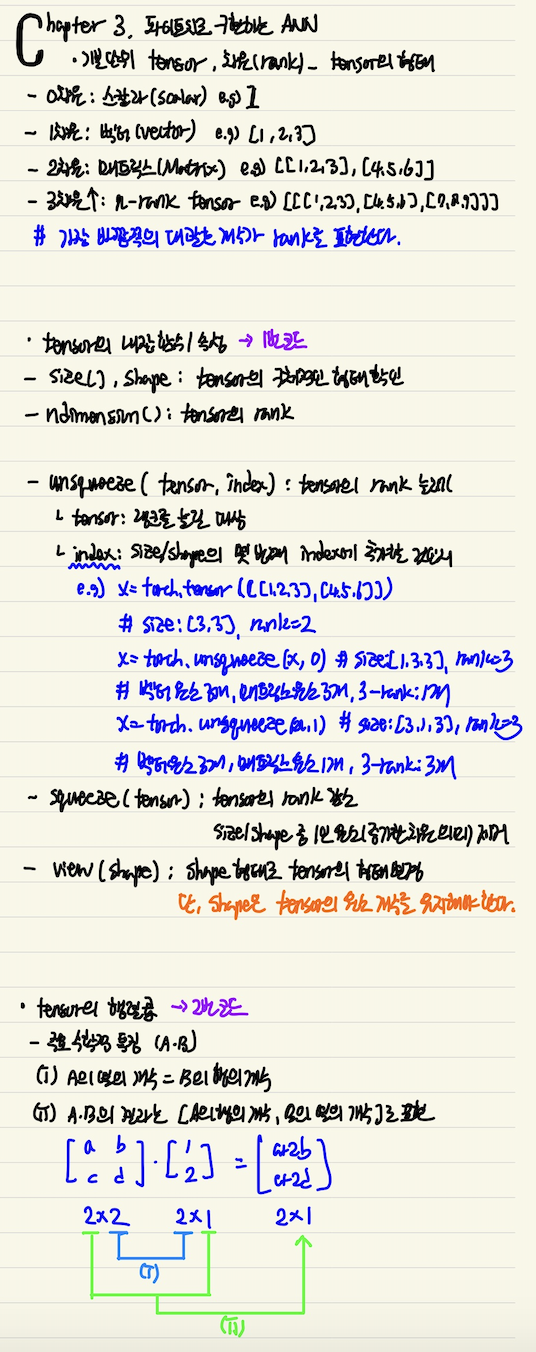 Chapter 3. 파이토치로 구현하는 ANN
· 기본단위 tensor, 차원(rank) - tensor의 형태
- 0차원: 스칼라(scalar) e.g) 1
- 1차원: 벡터(vector) e.g) [1,2,3]
- 2차원: 매트릭스(Matrix) e.g) [[1,2,3],[4,5,6]]
- 3차원↑: n-rank tensor e.g) [[[1,2,3],[4,5,6],[7,8,9]]]
# 가장 바깥쪽의 대괄호 개수가 rank로 표현된다.
· tensor의 내장함수/속성 → 1번코드
- size(), shape : tensor의 구체적인 형태 확인
- ndimension() : tensor의 rank
- unsqueeze( tensor, index) : tensor의 rank 늘리기
└ tensor: 랭크를 늘릴 대상
└ index: size/shape의 몇 번째 index에 추가할 것인지
e.g) x = torch.tensor([[1,2,3],[4,5,6]])
# size: [3,3], rank=2
x = torch.unsqueeze(x, 0) # size:[1,3,3], rank=3
# 벡터원소 3개, 매트릭스원소 3개, 3-rank: 1개
x = torch.unsqueeze(x,1) # size: [3,1,3], rank=3
# 벡터원소 3개, 매트릭스원소 1개, 3-rank: 3개
- squeeze(tensor) ; tensor의 rank 감소
size/shape 중 1인 원소(증가한 차원 의미) 제거
- view(shape) ; shape 형태로 tensor의 형태 변경
단, shape은 tensor의 원소 개수를 유지해야 한다.
· tensor의 행렬곱 → 2번코드
- 주요 수학적 특징 (A·B)
(i) A의 열의 개수 = B의 행의 개수
(ii) A·B의 결과는 [A의 행의 개수, B의 열의 개수]로 표현
[a b c d] · [1 2] = [a+2b c+2d]
2×2 2×1 2×1
(i)
(ii)